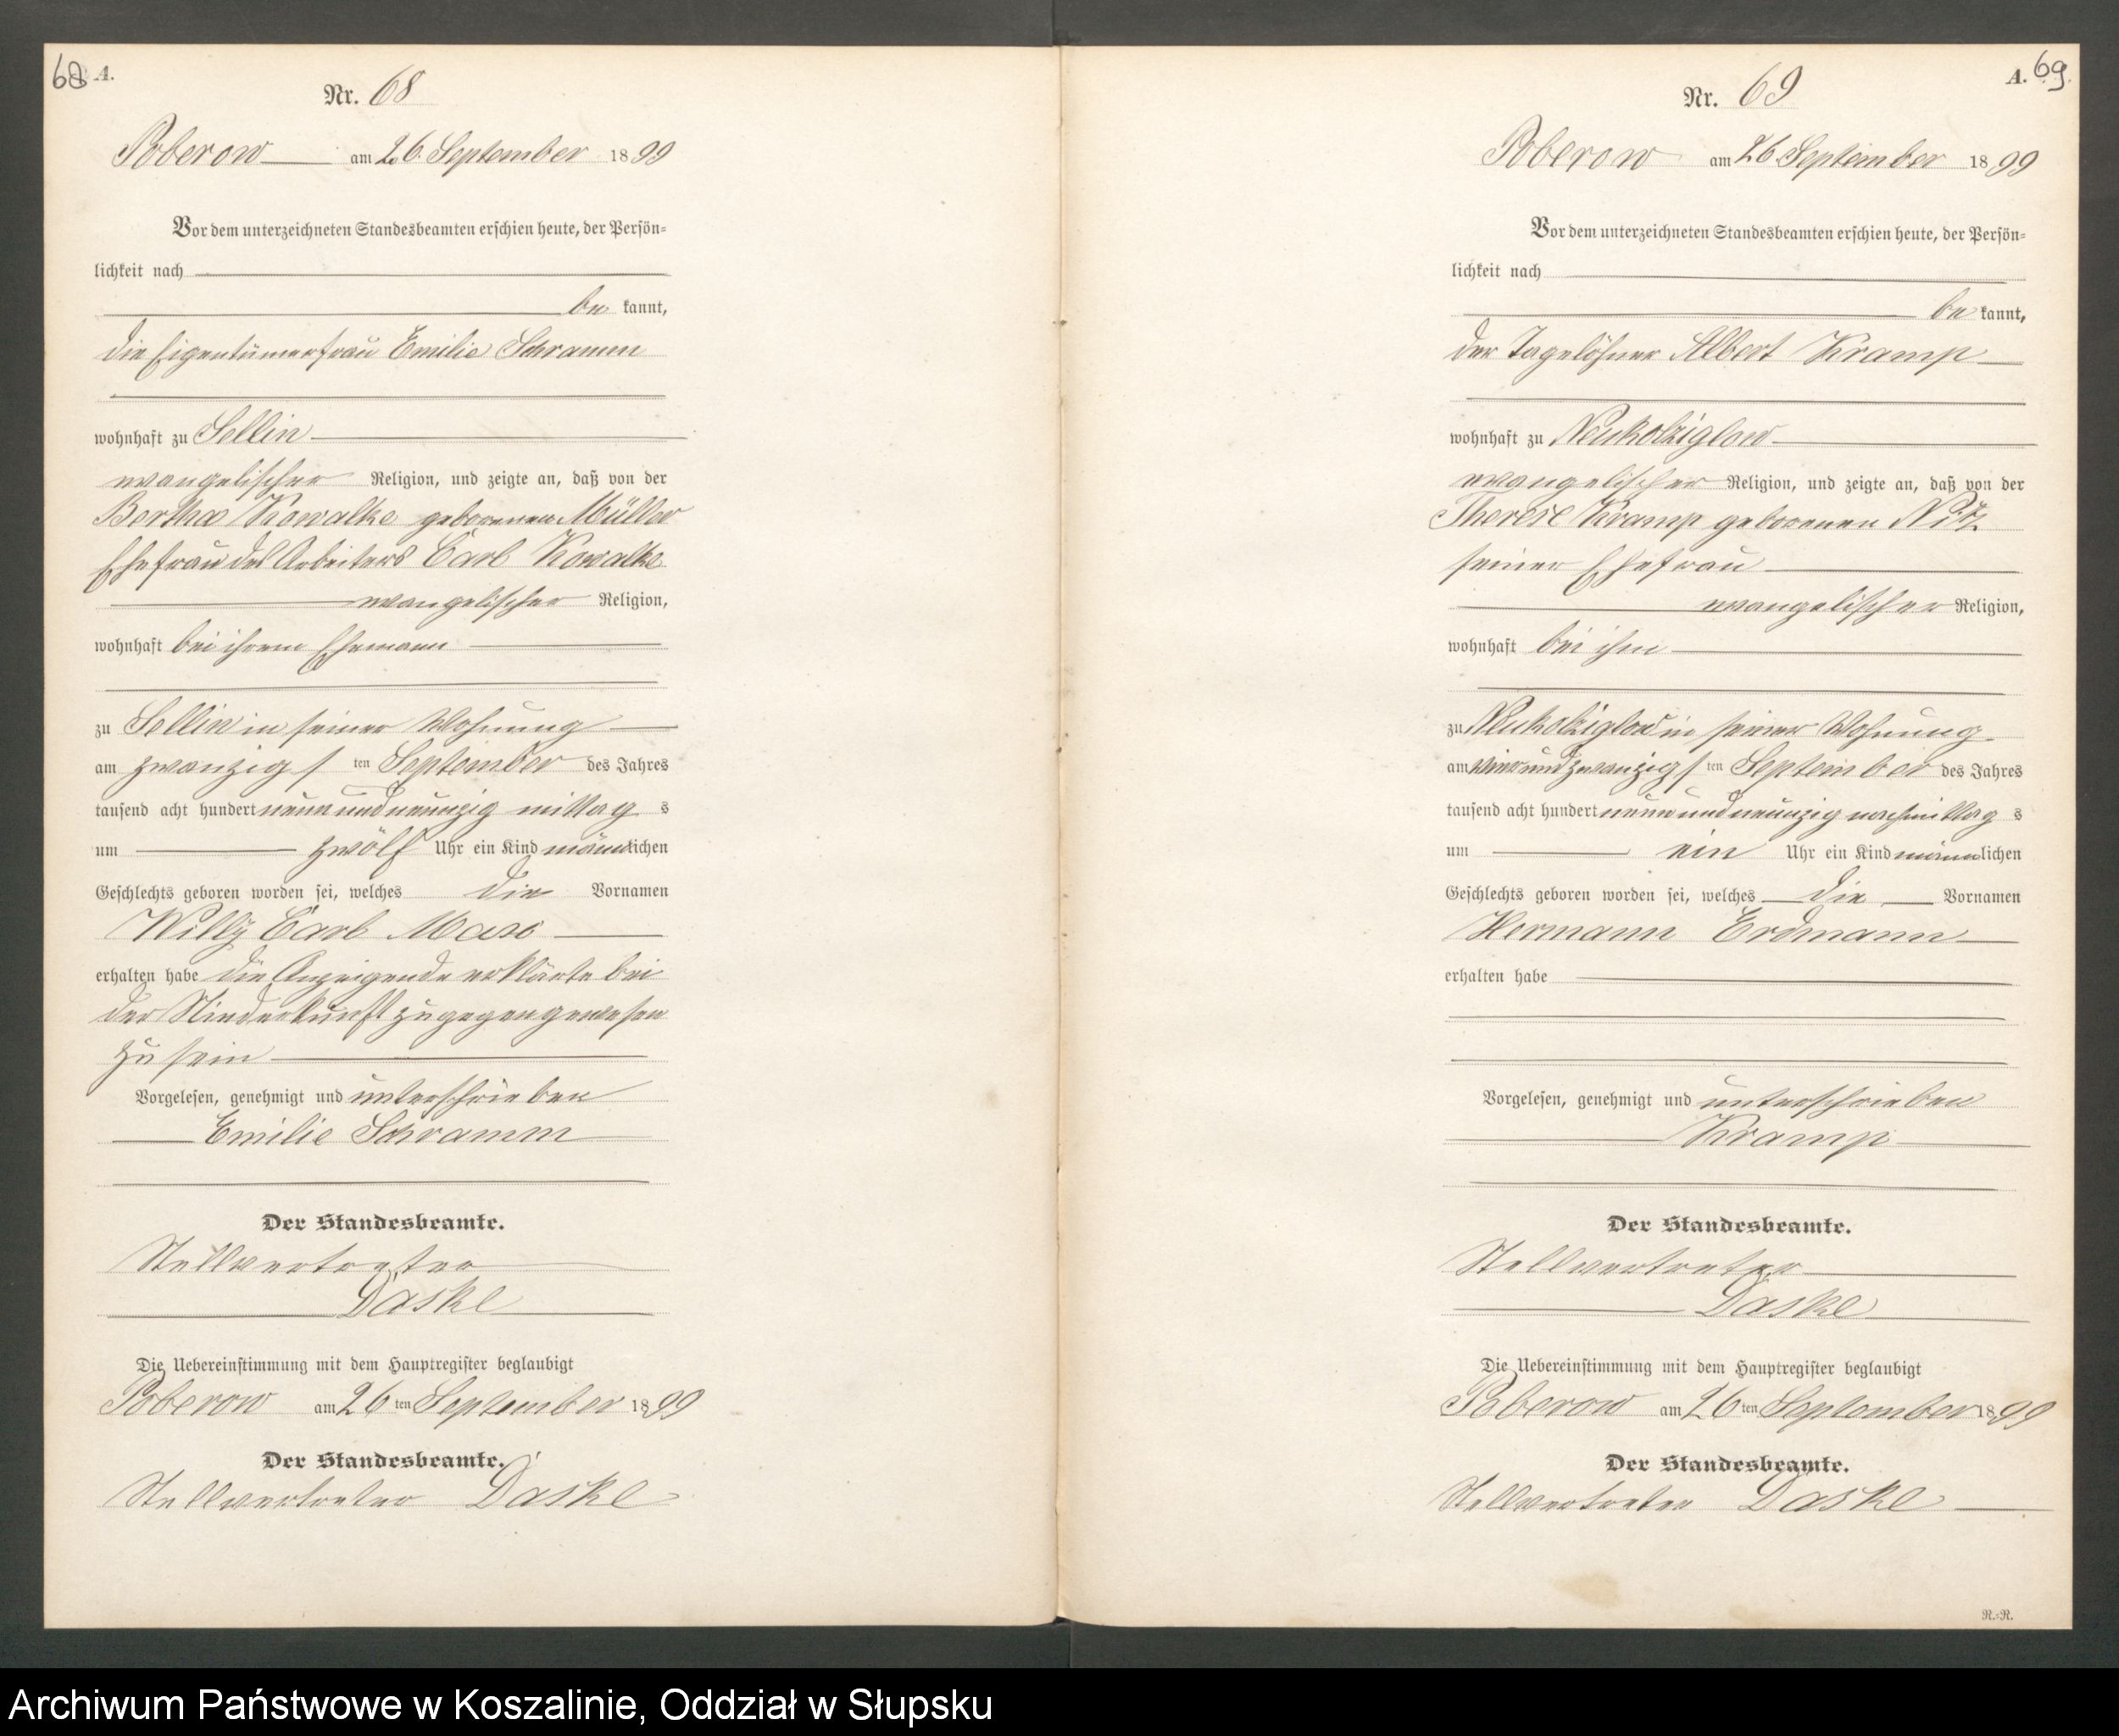 68 A.
Nr. 68
Poberow am 26. September 1899
Vor dem unterzeichneten Standesbeamten erschien heute, der Persön-
lichkeit nach
be kannt,
die Eigentümerfrau Emilie Schramm
wohnhaft zu Sellin
evangelischer Religion, und zeigte an, daß von der
Bertha Kowalke geborenen Müller
Ehefrau des Arbeiters Carl Kowalke
evangelischer Religion,
wohnhaft bei ihrem Ehemann
zu Sellin in seiner Wohnung
am zwanzigsten September des Jahres
tausend acht hundert neun und neunzig mittag s
um zwölf Uhr ein Kind männlichen
Geschlechts geboren worden sei, welches die Vornamen
Willy Carl Max
erhalten habe die Anzeigende erklärte bei
der Niederkunft zugegen gewesen
zu sein
Vorgelesen, genehmigt und unterschrieben
Emilie Schramm
Der Standesbeamte.
Stellvertreter
Daske
Die Uebereinstimmung mit dem Hauptregister beglaubigt
Poberow am 26 ten September 1899
Der Standesbeamte.
Stellvertreter Daske
A. 69.
Nr. 69
Poberow am 26 September 1899
Vor dem unterzeichneten Standesbeamten erschien heute, der Persön-
lichkeit nach
be kannt,
der Tagelöhner Albert Kramp
wohnhaft zu Neukolziglow
evangelischer Religion, und zeigte an, daß von der
Therese Kramp geborenen Nitz
seiner Ehefrau
evangelischer Religion,
wohnhaft bei ihm
zu Neukolziglow in seiner Wohnung
am vier und zwanzigsten September des Jahres
tausend acht hundert neun und neunzig nachmittag s
um ein Uhr ein Kind männlichen
Geschlechts geboren worden sei, welches die Vornamen
Hermann Erdmann
erhalten habe
Vorgelesen, genehmigt und unterschrieben
Kramp
Der Standesbeamte.
Stellvertreter
Daske
Die Uebereinstimmung mit dem Hauptregister beglaubigt
Poberow am 26 ten September 1899
Der Standesbeamte.
Stellvertreter Daske
R.-R.
Archiwum Państwowe w Koszalinie, Oddział w Słupsku